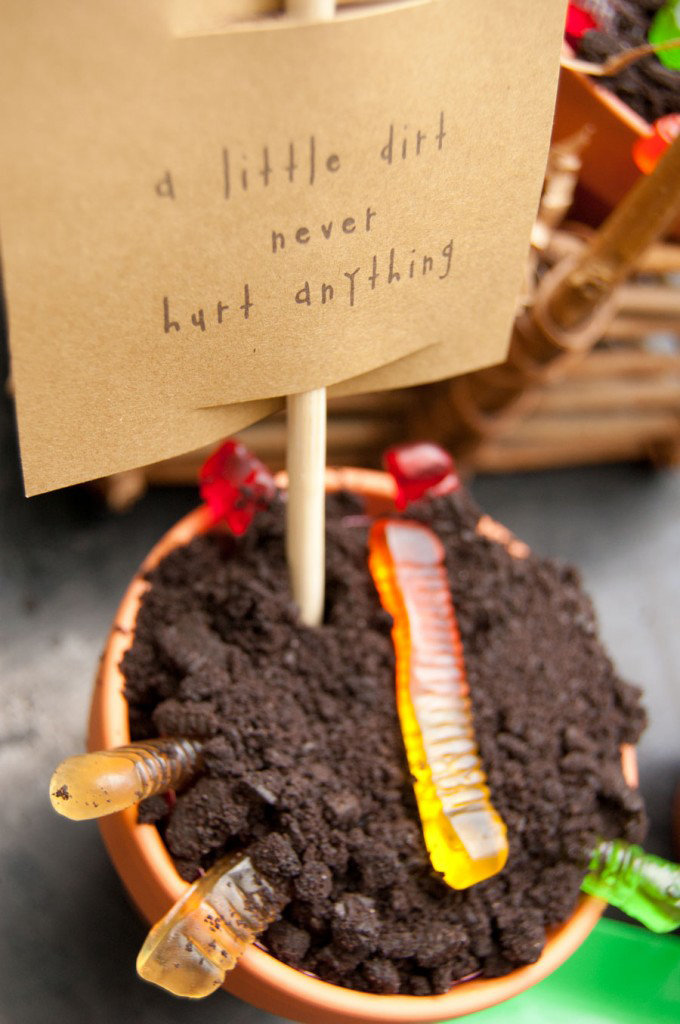 a little dirt
never
hurt anything